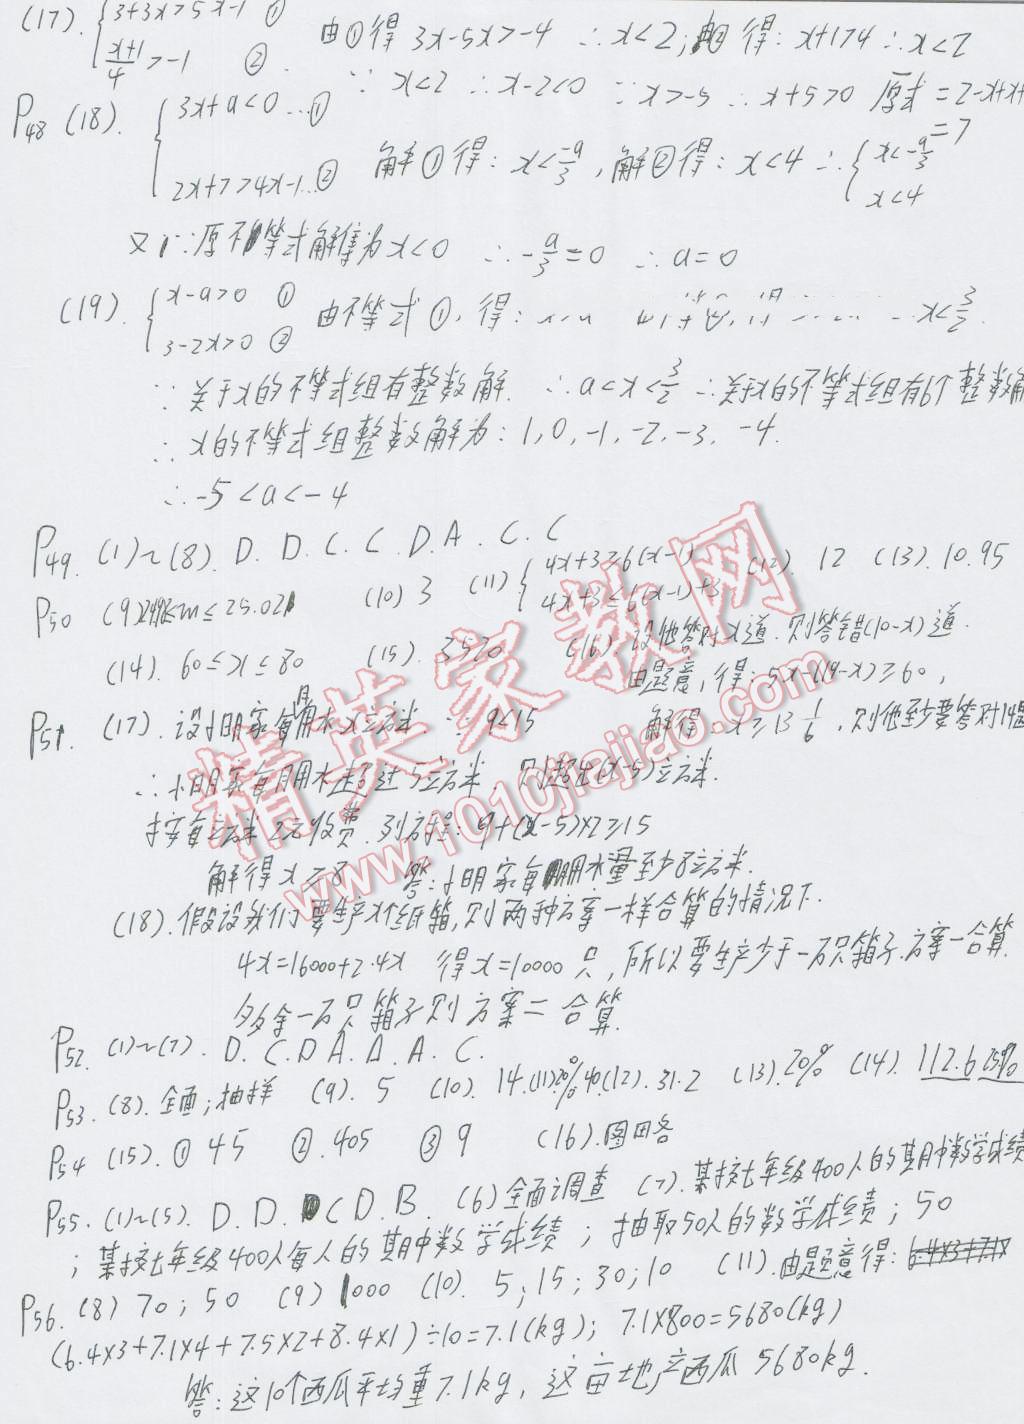 (17). { 3+3x>5x-1 ①
x+1/4 >-1 ②
由①得 3x-5x>-4 ∴x<2; 由② 得: x+1>4 ∴x<2
∵x<2 ∴x-2<0 ∵x>-5 ∴x+5>0 原式=2-x+x+
=7
P48 (18). { 3x+a<0 …①
2x+7>4x-1…②
解①得: x<-a/3, 解②得: x<4 ∴{ x<-a/3
x<4
又∵原不等式解集为x<0 ∴-a/3=0 ∴a=0
(19). { x-a>0 ①
3-2x>0 ②
由不等式①, 得: x<3/2.
∵关于x的不等式组有整数解. ∴a<x<3/2 ∵关于x的不等式组有6个整数解
∴x的不等式组整数解为: 1, 0, -1, -2, -3, -4.
∴-5<a<-4
P49. (1)~(8). D. D. C. C. D. A. C. C
P50 (9) ≤m≤25.02 (10) 3 (11) { 4x+3≥6(x-1)
4x+3≤6(x-1)+3
(12). 12 (13). 10.95
(14). 60≤x≤80 (15). 3520 (16). 设他答对x道. 则答错(10-x)道.
由题意, 得: 5x-(19-x)≥60,
解得 x≥13 1/6, 则他至少要答对14题
P51 (17). 设小明家每月用水x立方米. ∵9<15
∴小明家每月用水超过5立方米, 则超出(x-5)立方米.
按每立方米2元收费. 列方程: 9+(x-5)×2≥15
解得x≥8 答:小明家每月用水量至少8立方米.
(18). 假设我们要生产x个纸箱, 则两种方案一样合算的情况下.
4x=16000+2.4x 得x=10000只, 所以要生产少于一万只箱子. 方案一合算.
多余一万只箱子则方案二合算.
P52. (1)~(7). D. C. D A. A. A. C.
P53. (8). 全面; 抽样 (9). 5 (10). 14. (11)20% 40. (12). 31.2 (13). 20% (14). 112.6 25%
P54 (15). ① 45 ②. 405 ③ 9 (16). 图略
P55. (1)~(5). D. D. C D. B. (6) 全面调查 (7). 某校七年级400人的期中数学成绩
; 某校七年级400人每人的期中数学成绩; 抽取50人的数学成绩; 50
P56. (8) 70; 50 (9) 1000 (10). 5; 15; 30; 10 (11). 由题意得:
(6.4×3+7.1×4+7.5×2+8.4×1)÷10=7.1(kg); 7.1×800=5680(kg)
答: 这10个西瓜平均重7.1kg, 这亩地产西瓜5680kg.
精英家教网
www.1010jiajiao.com